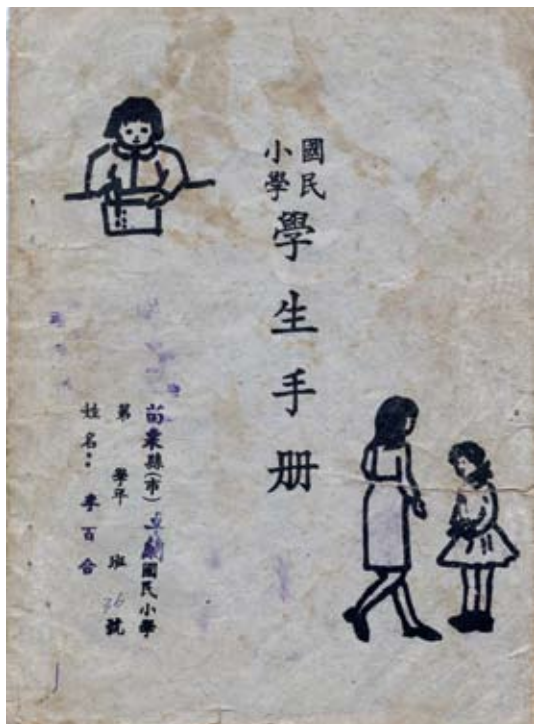 國民
小學
學生手册
苗栗縣(市)卓蘭國民小學
第 學年 班 36 號
姓名：李百合